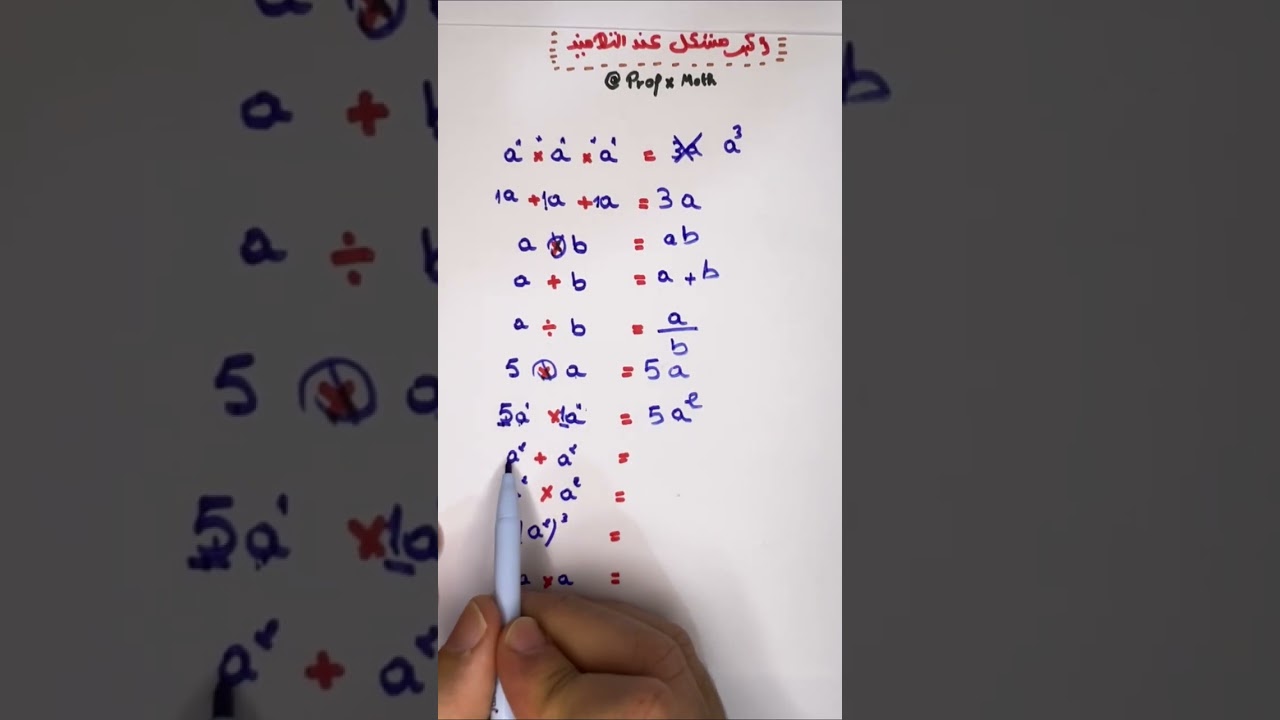 اكبر مشكل عند التلاميذ
@ Prof x Math
a¹ × a¹ × a¹ = 3a a³
1a + 1a + 1a = 3a
a × b = ab
a + b = a + b
a ÷ b = a/b
5 × a = 5a
5a¹ × 1a¹ = 5a²
a² + a² =
² × a² =
(a²)³ =
a × a =